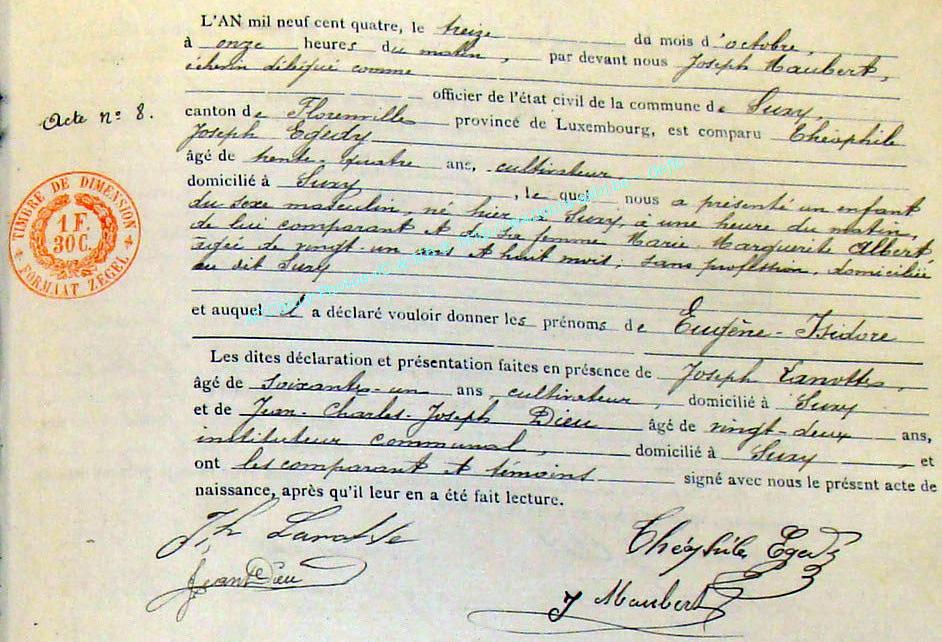 L'AN mil neuf cent quatre, le treize du mois d'octobre,
à onze heures du matin, par devant nous Joseph Maubert,
échevin délégué comme
officier de l'état civil de la commune de Suxy,
Acte n° 8.
canton de Florenville province de Luxembourg, est comparu Théophile
Joseph Egedy
âgé de trente-quatre ans, cultivateur
domicilié à Suxy, le quel nous a présenté un enfant
du sexe masculin, né hier à Suxy, à une heure du matin,
de lui comparant et de sa femme Marie-Marguerite Albert,
agée de vingt-un ans et huit mois, sans profession, domiciliée
au dit Suxy
TIMBRE DE DIMENSION
1 F.
30 C.
FORMAAT ZEGEL
et auquel il a déclaré vouloir donner les prénoms de Eugène-Isidore
Les dites déclaration et présentation faites en présence de Joseph Lanotte,
âgé de soixante-un ans, cultivateur, domicilié à Suxy
et de Jean-Charles-Joseph Dieu âgé de vingt-deux ans,
instituteur communal, domicilié à Suxy, et
ont les comparant et témoins signé avec nous le présent acte de
naissance, après qu'il leur en a été fait lecture.
Jh Lanotte
Théophile Egedy
Jean Dieu
J Maubert